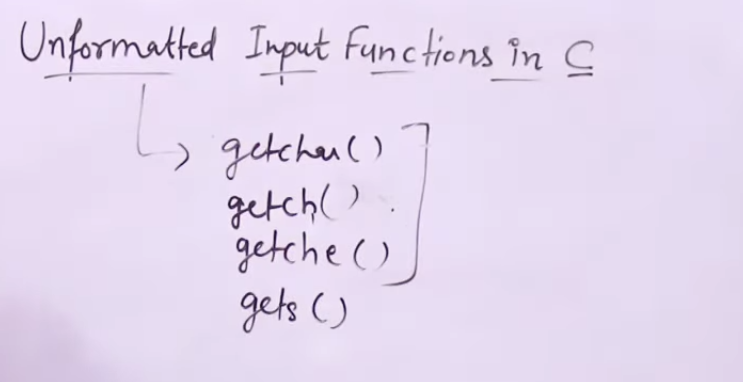 Unformatted Input Functions in C
getchar()
getch()
getche()
gets()